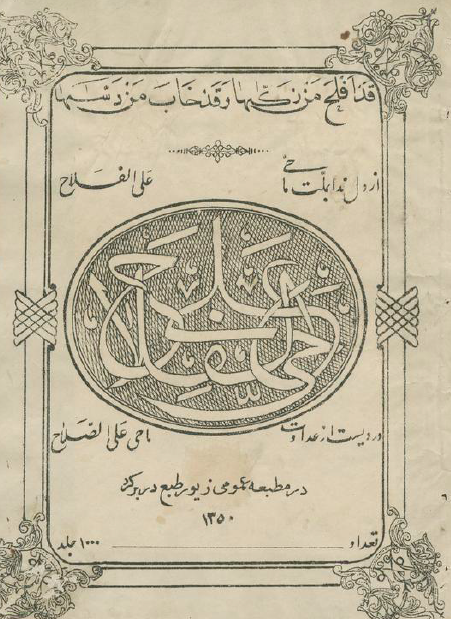 قد افلح من زکّٰها وقد خاب من دسّٰها
از دل ندا بملت ما حی علی الفلاح
حی علی الفلاح
دردیست از عداوت ما حی علی الصّلاح
در مطبعه عمومی زیور طبع در بر کرد
۱۳۵۰
تعداد ۱۰۰۰ جلد